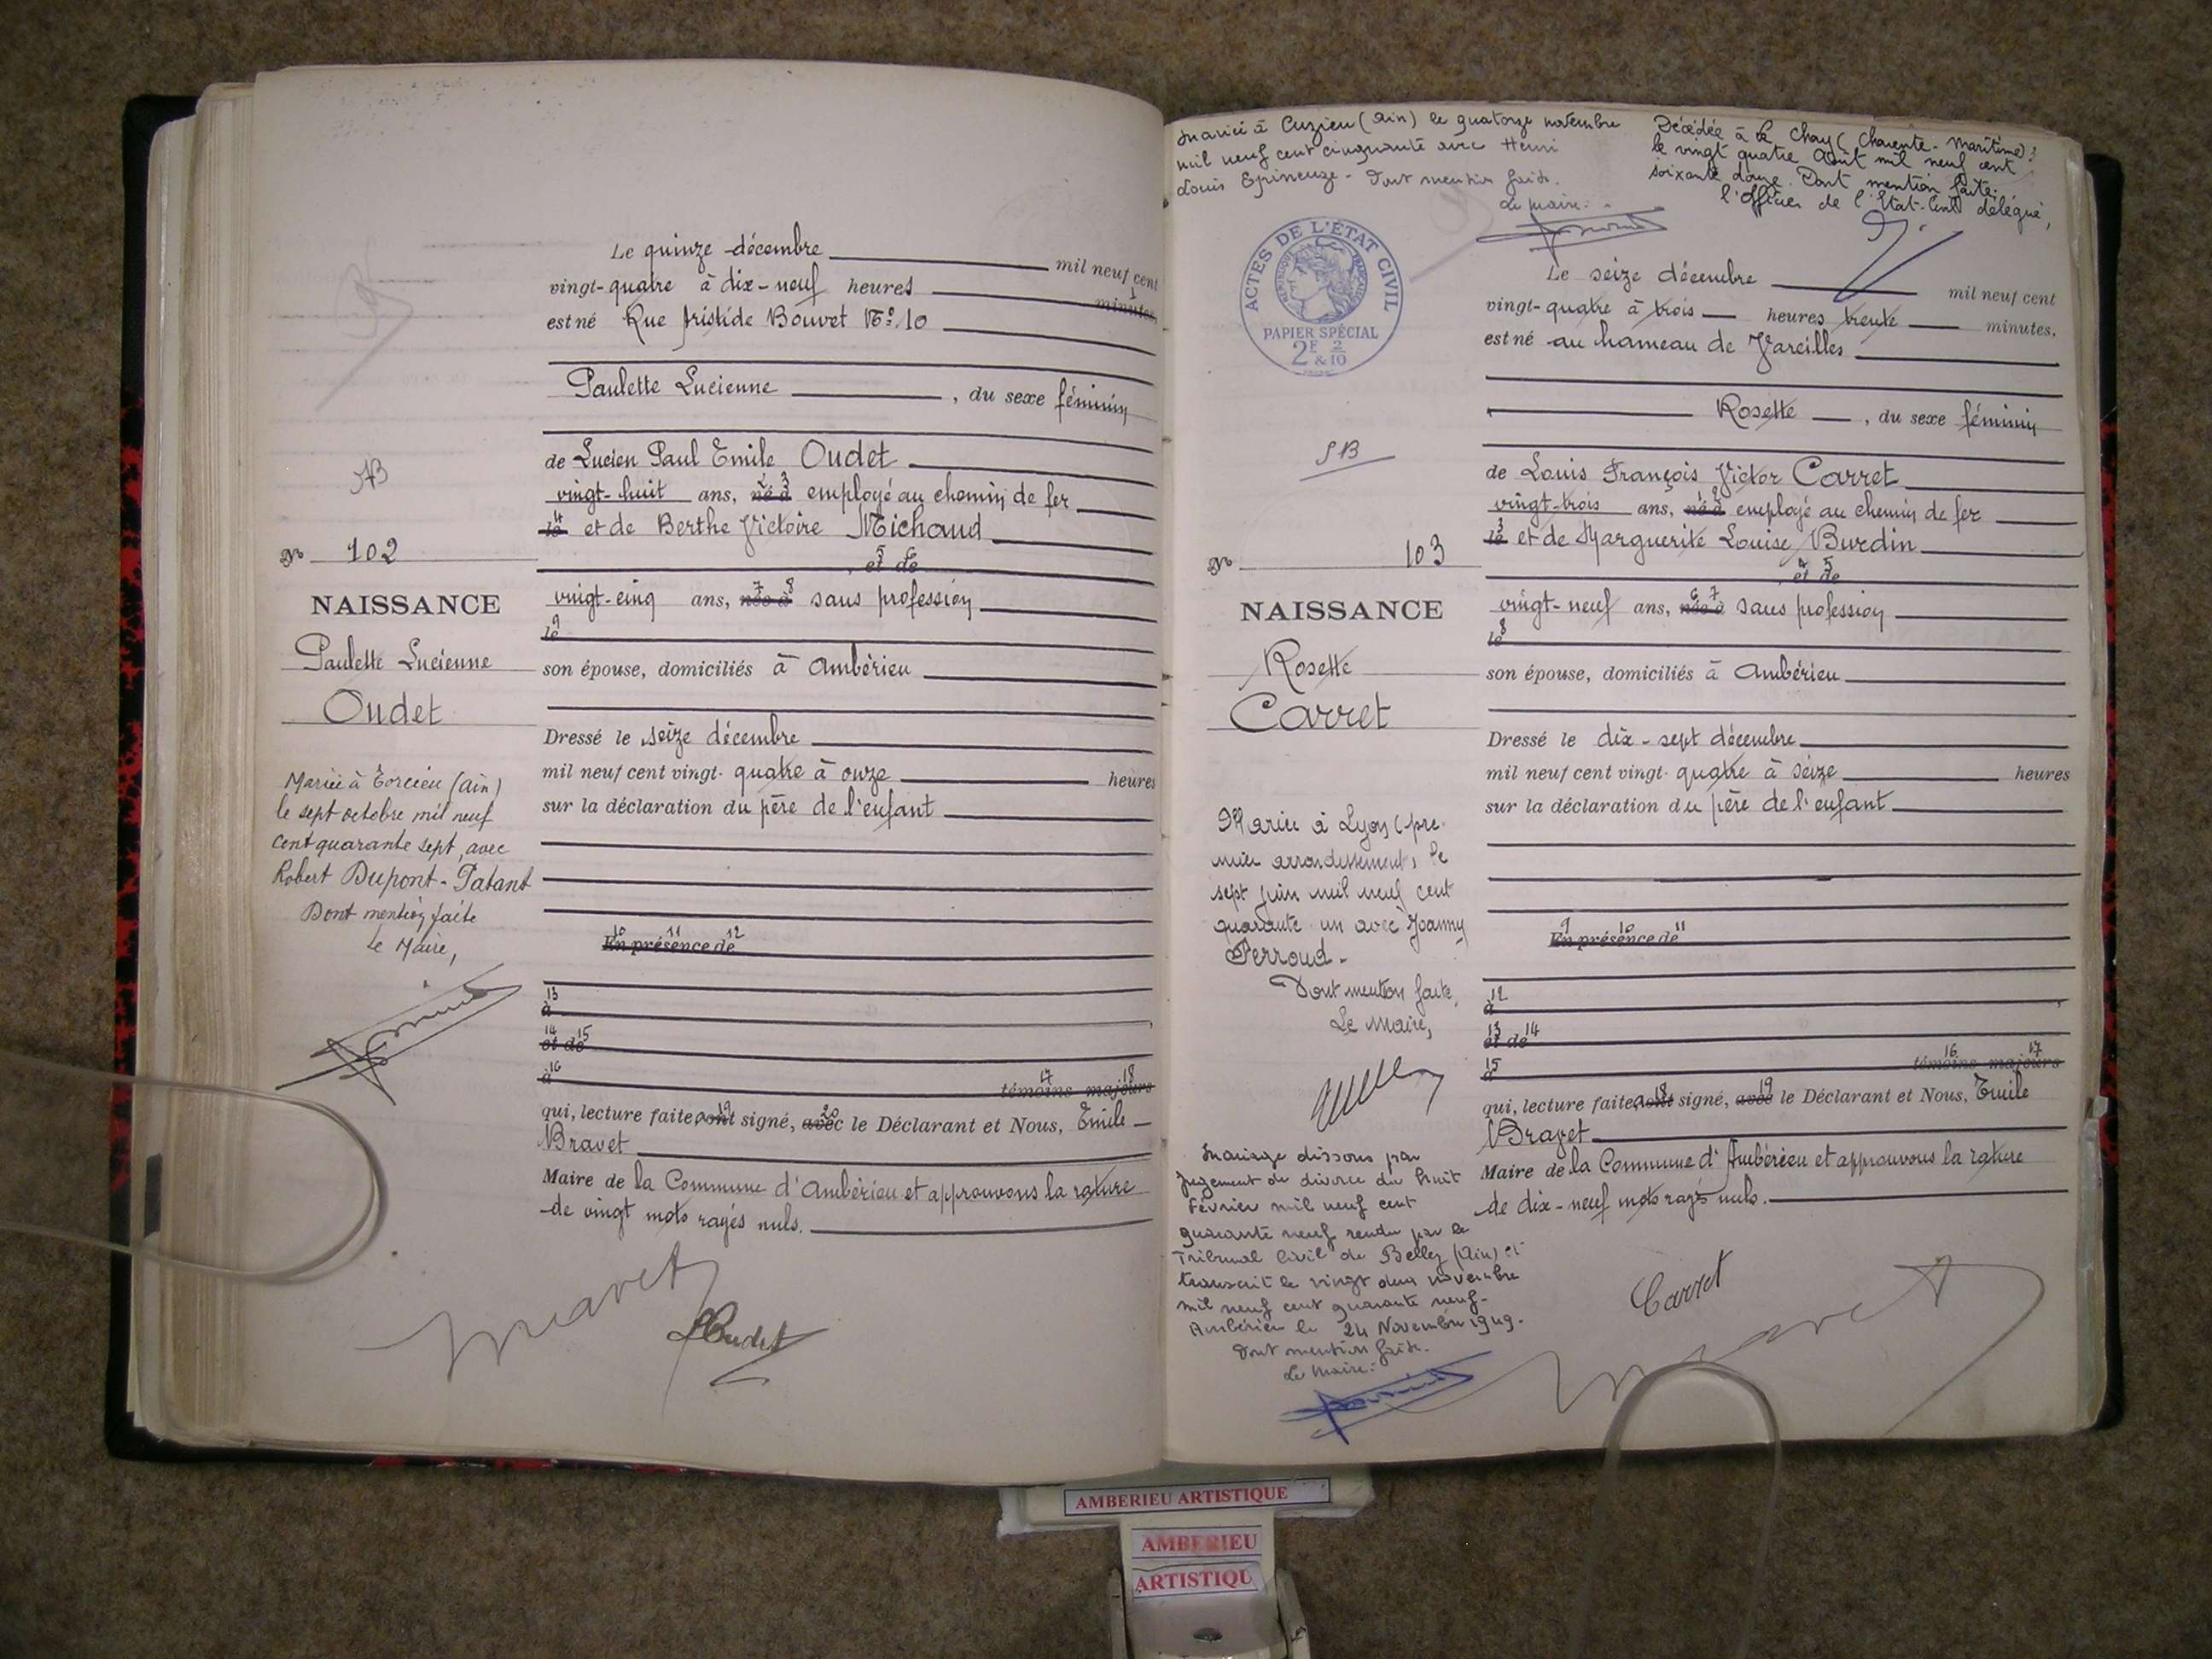 Le quinze décembre mil neuf cent
vingt-quatre à dix-neuf heures minutes
est né Rue Aristide Bouvet N° 10
Paulette Lucienne , du sexe féminin
de Lucien Paul Emile Oudet
vingt-huit ans, né à employé au chemin de fer
le et de Berthe Victoire Michaud
et de
vingt-cinq ans, née à sans profession
le
son épouse, domiciliés à Ambérieu
Dressé le seize décembre
mil neuf cent vingt-quatre à onze heures
sur la déclaration du père de l'enfant
En présence de
à
et de
à témoins majeurs
qui, lecture faite, ont signé, avec le Déclarant et Nous, Emile
Bravet
Maire de la Commune d'Ambérieu et approuvons la rature
de vingt mots rayés nuls.
Bravet
LOudet
N° 102
NAISSANCE
Paulette Lucienne
Oudet
Mariée à Torcieu (Ain)
le sept octobre mil neuf
cent quarante sept, avec
Robert Dupont-Patant
Dont mention faite
Le Maire,
Mariée à Cuzieu (Ain) le quatorze novembre
mil neuf cent cinquante avec Henri
Louis Epineuze - Dont mention faite.
Le Maire:
Décédée à Le Chay (Charente-Maritime)
le vingt quatre Août mil neuf cent
soixante douze. Dont mention faite.
l'Officier de l'Etat-Civil délégué,
ACTES DE L'ÉTAT CIVIL
RÉPUBLIQUE FRANÇAISE
PAPIER SPÉCIAL
2F & 2/10
Le seize décembre mil neuf cent
vingt-quatre à trois heures trente minutes,
est né au hameau de Vareilles
Rosette , du sexe féminin
de Louis François Victor Carret
vingt-trois ans, né à employé au chemin de fer
le et de Marguerite Louise Burdin
et de
vingt-neuf ans, née à sans profession
le
son épouse, domiciliés à Ambérieu
Dressé le dix-sept décembre
mil neuf cent vingt-quatre à seize heures
sur la déclaration du père de l'enfant
En présence de
à
et de
à témoins majeurs
qui, lecture faite, ont signé, avec le Déclarant et Nous, Emile
Bravet
Maire de la Commune d'Ambérieu et approuvons la rature
de dix-neuf mots rayés nuls.
Carret
Bravet
SB
N° 103
NAISSANCE
Rosette
Carret
Mariée à Lyon (pre-
mier arrondissement) le
sept juin mil neuf cent
quarante un avec Joanny
Perroud -
Dont mention faite,
Le Maire,
Mariage dissous par
jugement de divorce du huit
Février mil neuf cent
quarante neuf rendu par le
Tribunal Civil de Belley (Ain) et
transcrit le vingt deux novembre
mil neuf cent quarante neuf-
Ambérieu le 24 Novembre 1949-
Dont mention faite.
Le Maire:
AMBERIEU ARTISTIQUE
AMBERIEU
ARTISTIQU